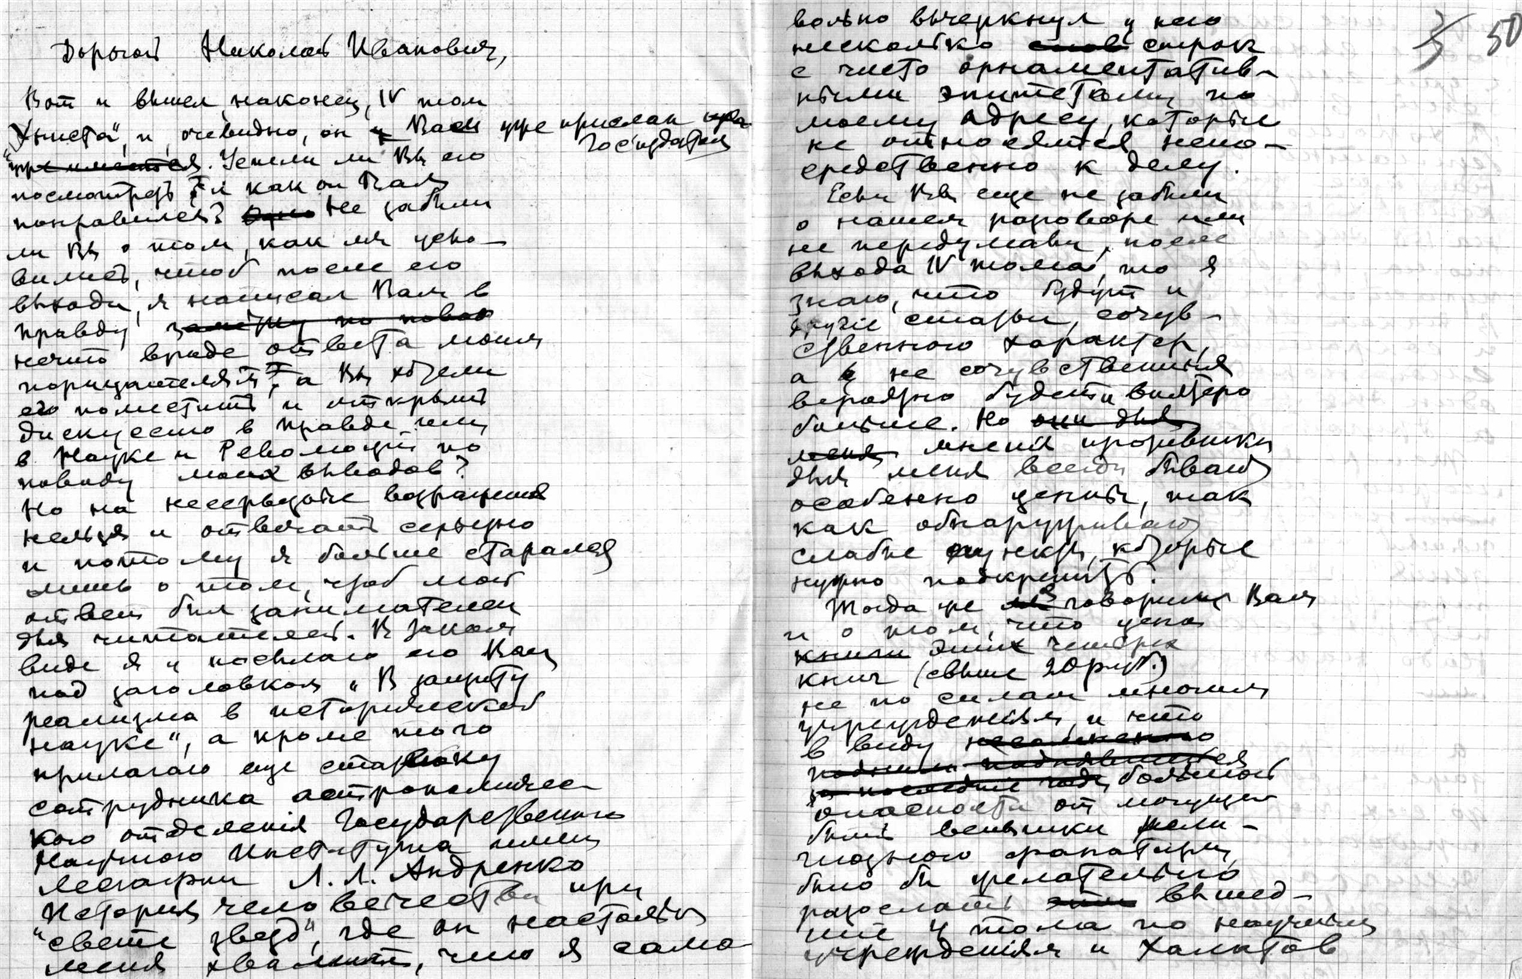 Дорогой Николай Иванович,
Вот и вышел наконец, IV том
"Христа", и, очевидно, он Вам уже прислан
Госиздатом
Успели ли Вы его
посмотреть и как он Вам
понравился? Не забыли
ли Вы о том, как мы усло-
вились, чтоб после его
выхода, я написал Вам в
Правду
нечто вроде ответа моим
порицателям, а Вы хотели
его поместить и открыть
дискуссию в Правде или
в Науке и Революции по
поводу моих выводов?
Но на несерьезные возражения
нельзя и отвечать серьезно
и потому я больше старался
лишь о том, чтоб мой
ответ был занимателен
для читателей. В таком
виде я и посылаю его Вам
под заголовком „В защиту
реализма в исторической
науке", а кроме того
прилагаю еще статью
сотрудника астрономичес-
кого отделения Государственного
Научного Института имени
Лесгафта Л. Л. Андренко
История человечества при
"свете звезд", где он настолько
меня хвалит, что я само-
вольно вычеркнул у него
несколько строк
с чисто орнаментатив-
ными эпитетами по
моему адресу, которые
не относятся непо-
средственно к делу.
Если Вы еще не забыли
о нашем разговоре или
не передумали, после
выхода IV тома, то я
знаю, что будут и
другие статьи, сочув-
ственного характера,
а не сочувственных
вероятно будет и вчетверо
больше. Но
мнения противника
для меня всегда бывают
особенно ценны, так
как обнаруживают
слабые пункты, которые
нужно подкрепить.
Тогда же говорил Вам
и о том, что цена
этих четырех
книг (свыше 20 руб.)
не по силам многим
учреждениям, и что
в виду
большой
опасности от могущей
быть вспышки рели-
гиозного фанатизма,
было бы желательно
разослать вышед-
шие 4 тома по научным
учреждениям и